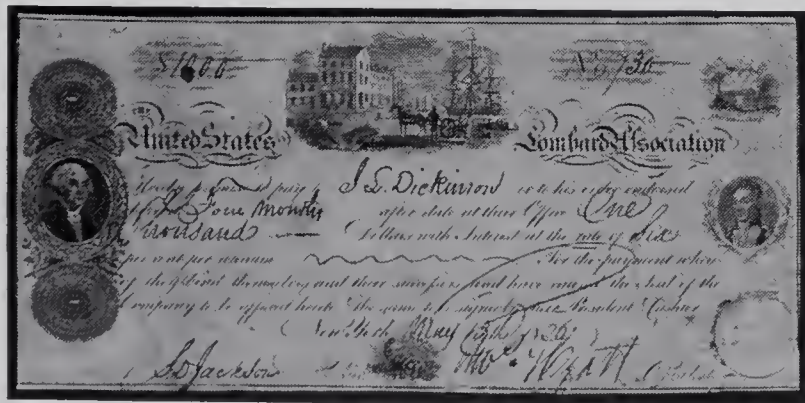 $1000 No. 730
United States Lombard Association
Hereby promise to pay J L Dickinson or to his order endorsed
Four Months after date at their Office One
Thousand Dollars with Interest at the rate of Six
per cent per annum For the payment where
of they bind themselves and their successors and have caused the Seal of the
Company to be affixed hereto The same to be signed by their President & Cashier
New York May 13th 1826
S D Jackson Wyatt